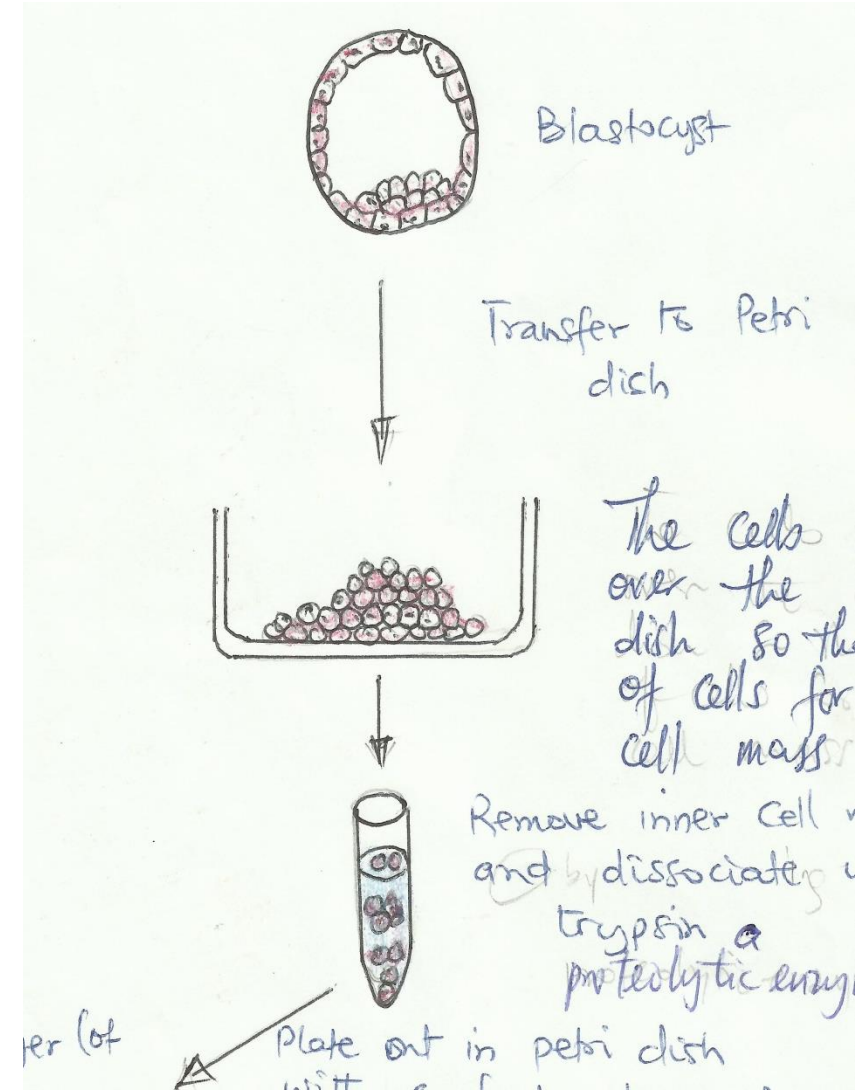 Blastocyst
Transfer to Petri
dish
The cells
over the
dish so the
of cells for
cell mass
Remove inner cell
and by dissociate
trypsin a
proteolytic enzy
er (of
Plate out in petri dish